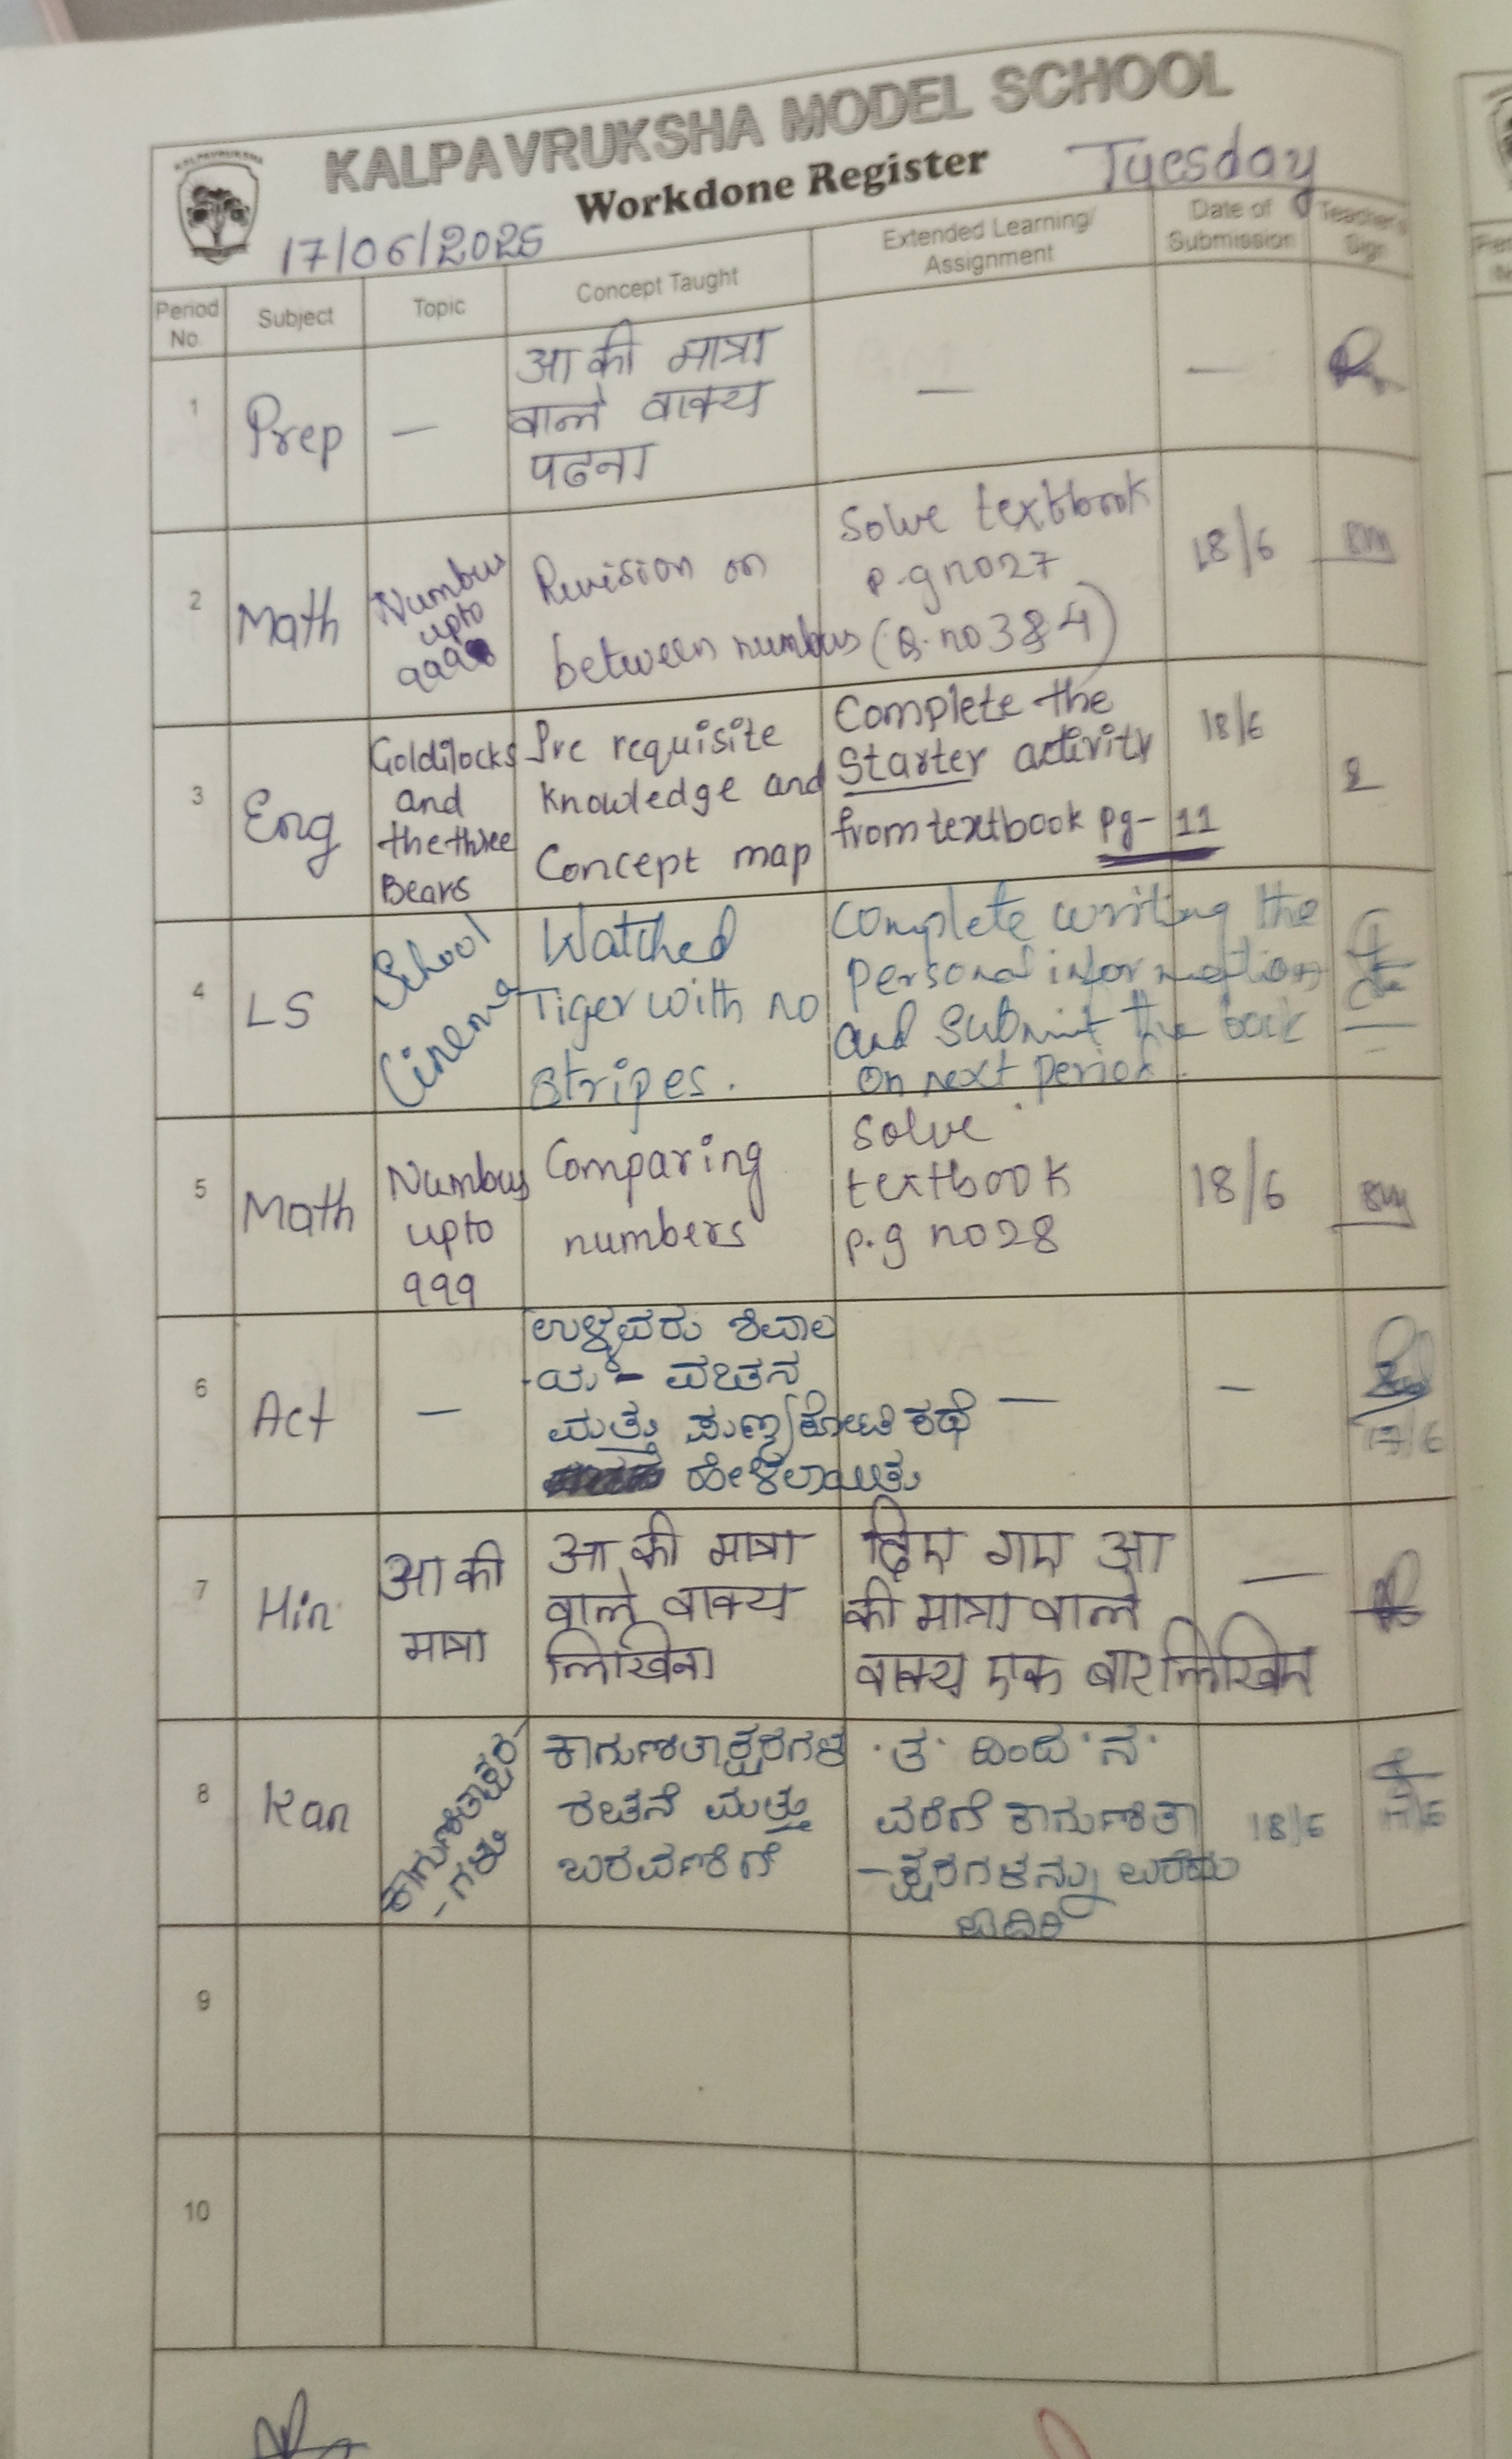 KALPAVRUKSHA MODEL SCHOOL
Workdone Register
Tuesday
17/06/2025
Period No.
Subject
Topic
Concept Taught
Extended Learning/ Assignment
Date of Submission
Teacher's Sign
1
Prep
—
आ की मात्रा
वाले वाक्य
पढना
—
—
2
Math
Numbers
upto
999
Revision on
between numbers
Solve textbook
p.g no 27
(Q. no 3 & 4)
18/6
3
Eng
Goldilocks
and
the three
Bears
Pre requisite
knowledge and
Concept map
Complete the
Starter activity
from textbook pg- 11
18/6
4
LS
School
Cinema
Watched
Tiger with no
stripes.
Complete writing the
personal information
and submit the book
on next period.
5
Math
Numbers
upto
999
Comparing
numbers
Solve
textbook
p.g no 28
18/6
6
Act
—
ಉಳ್ಳವರು ಶಿವಾಲ
-ಯ - ವಚನ
ಮತ್ತು ಪುಣ್ಯಕೋಟಿ ಕಥೆ
ಹೇಳಲಾಯಿತು
—
—
17/6
7
Hin
आ की
मात्रा
आ की मात्रा
वाले वाक्य
लिखिना
दिए गए आ
की मात्रा वाले
वाक्य एक बार लिखिए
—
8
Kan
ಕಾಗುಣಿತಾಕ್ಷರ-
-ಗಳು
ಕಾಗುಣಿತಾಕ್ಷರಗಳ
ರಚನೆ ಮತ್ತು
ಬರವಣಿಗೆ
'ತ' ದಿಂದ 'ನ'
ವರೆಗೆ ಕಾಗುಣಿತಾ
-ಕ್ಷರಗಳನ್ನು ಬರೆದು
ಓದಿರಿ
18/6
17/6
9
10